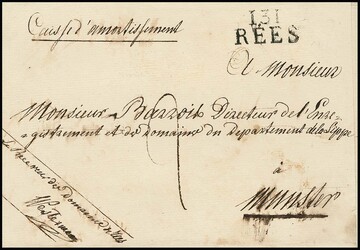 Caisse d'amortissement
131
REES
A Monsieur
Monsieur Bazzoit Directeur de l'Enre-
gistrement et des Domaines du Departement de la Lippe
à
Munster
Le Receveur des Domaines de Rees